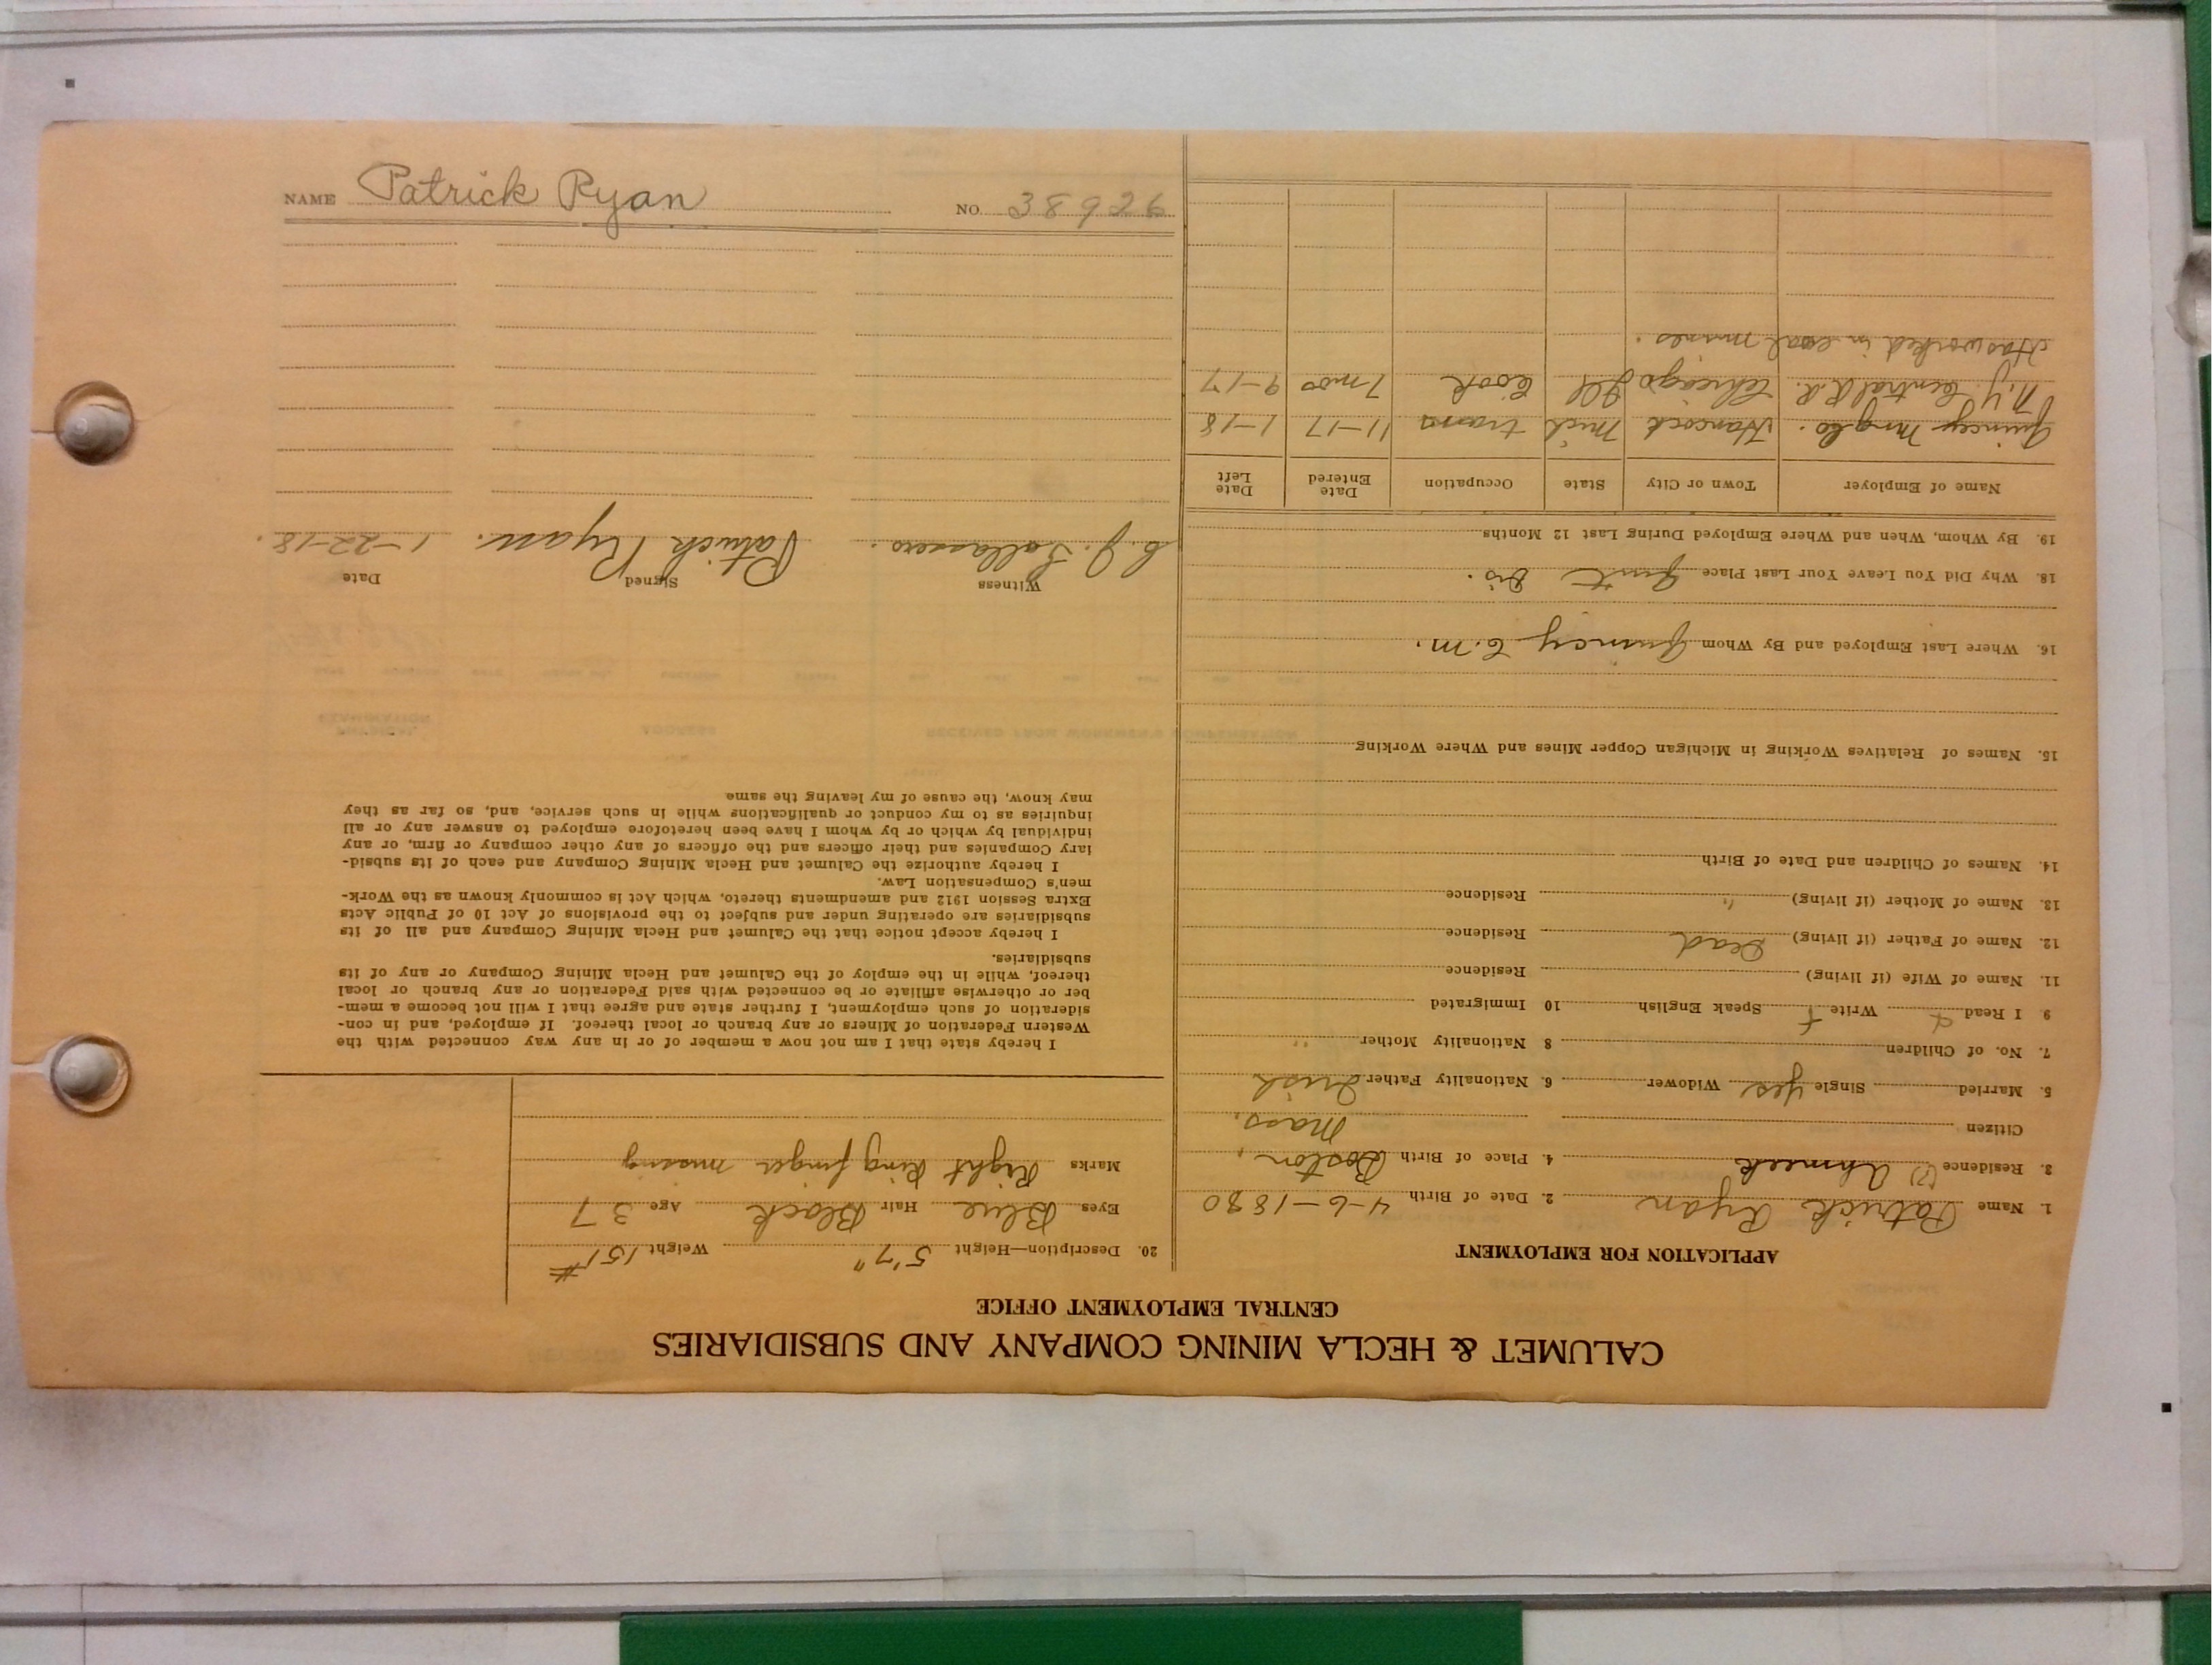 NAME Patrick Ryan NO. 38926
CALUMET & HECLA MINING COMPANY AND SUBSIDIARIES
CENTRAL EMPLOYMENT OFFICE
APPLICATION FOR EMPLOYMENT
1. Name Patrick Ryan 2. Date of Birth 4-6-1880
3. Residence Ahmeek 4. Place of Birth Boston,
Citizen Mass.
5. Married Single yes Widower 6. Nationality Father Irish
7. No. of Children 8 Nationality Mother "
9 I Read Write Speak English 10 Immigrated
11. Name of Wife (if living) Residence
12. Name of Father (if living) Dead Residence
13. Name of Mother (if living) " Residence
14. Names of Children and Date of Birth
15. Names of Relatives Working in Michigan Copper Mines and Where Working
16. Where Last Employed and By Whom Quincy
18. Why Did You Leave Your Last Place Quit Dis.
19. By Whom, When and Where Employed During Last 12 Months
Name of Employer Town or City State Occupation Date Entered Date Left
Quincy Mng Co. Hancock Mich tram 11-17 1-18
N.Y. Central R.R. Chicago Ill Cook 7 mos 9-17
Has worked in coal mines.
20. Description—Height 5'7" Weight 151#
Eyes Blue Hair Black Age 37
Marks Right Ring finger missing
I hereby state that I am not now a member of or in any way connected with the
Western Federation of Miners or any branch or local thereof. If employed, and in con-
sideration of such employment, I further state and agree that I will not become a mem-
ber or otherwise affiliate or be connected with said Federation or any branch or local
thereof, while in the employ of the Calumet and Hecla Mining Company or any of its
subsidiaries.
I hereby accept notice that the Calumet and Hecla Mining Company and all of its
subsidiaries are operating under and subject to the provisions of Act 10 of Public Acts
Extra Session 1912 and amendments thereto, which Act is commonly known as the Work-
men's Compensation Law.
I hereby authorize the Calumet and Hecla Mining Company and each of its subsid-
iary Companies and their officers and the officers of any other company or firm, or any
individual by which or by whom I have been heretofore employed to answer any or all
inquiries as to my conduct or qualifications while in such service, and, so far as they
may know, the cause of my leaving the same
Witness Signed Date
C. J. Patrick Ryan. 1-22-18.